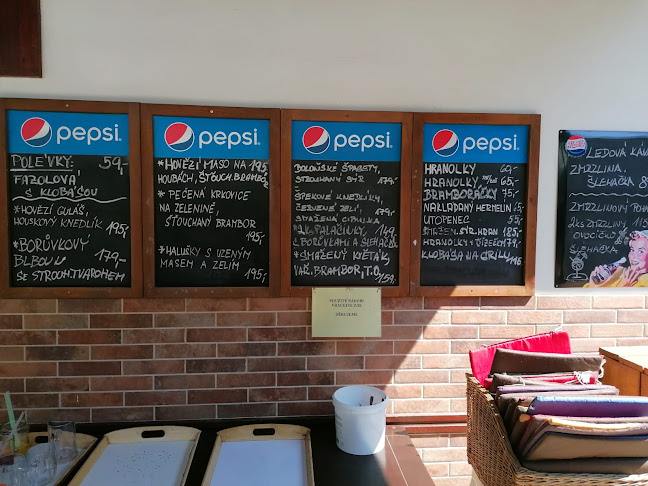 pepsi
POLÉVKY: 59,-
FAZOLOVÁ
S KLOBÁSOU
*HOVĚZÍ GULÁŠ,
HOUSKOVÝ KNEDLÍK 195,-
*BORŮVKOVÝ
BLBOUN 179,-
SE STROUH.TVAROHEM
pepsi
*HOVĚZÍ MASO NA 195,-
HOUBÁCH, ŠŤOUCH.BRAMBOR
* PEČENÁ KRKOVICE
NA ZELENINĚ,
ŠŤOUCHANÝ BRAMBOR
195,-
*HALUŠKY S UZENÝM
MASEM A ZELÍM 195,-
pepsi
BOLOŇSKÉ ŠPAGETY,
STROUHANÝ SÝR 179,-
ŠPEKOVÉ KNEDLÍKY,
ČERVENÉ ZELÍ, 179,-
SMAŽENÁ CIBULKA
2KS PALAČINKY 149,-
S BORŮVKAMI A ŠLEHAČ
* SMAŽENÝ KVĚTÁK,
VAŘ.BRAMBOR, T.O. 159,-
pepsi
HRANOLKY
HRANOLKY 65,-
BRAMBORÁČKY 45,-
NAKLÁDANÝ HERMELÍN
UTOPENEC 55,-
SMAŽ. SÝR. HRAN 185,-
HRANOLKY + ŘÍZEČKY 179,-
KLOBÁSA NA GRILU
LEDOVÁ KÁV
ZMRZLINA,
ŠLEHAČKA
ZMRZLINOVÝ POHÁ
2KS ZMRZLINY
OVOCE
ŠLEHAČKA
POUŽITÉ NÁDOBÍ
DĚKUJEME